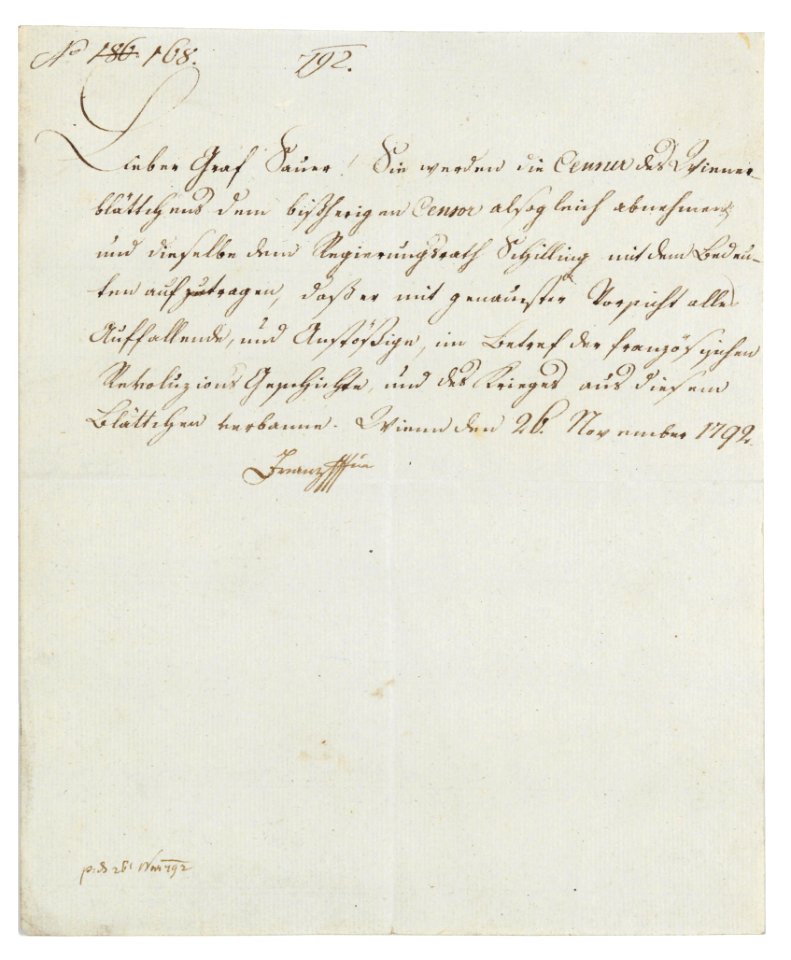 No 186. 168. 792.
Lieber Graf Sauer! Sie werden die Censur des Wiener-
blättchens dem bißherigen Censor alsogleich abnehmen,
und dieselbe dem Regierungsrath Schilling mit dem Bedeu-
ten auf zutragen, daß er mit genauester Vorsicht alles
Auffallende, und Anstößige, im Betref der französischen
Revoluzions Geschichte, und des Krieges aus diesem
Blättchen verbanne. Wienn den 26. November 1792.
Franz
28 Nov 792